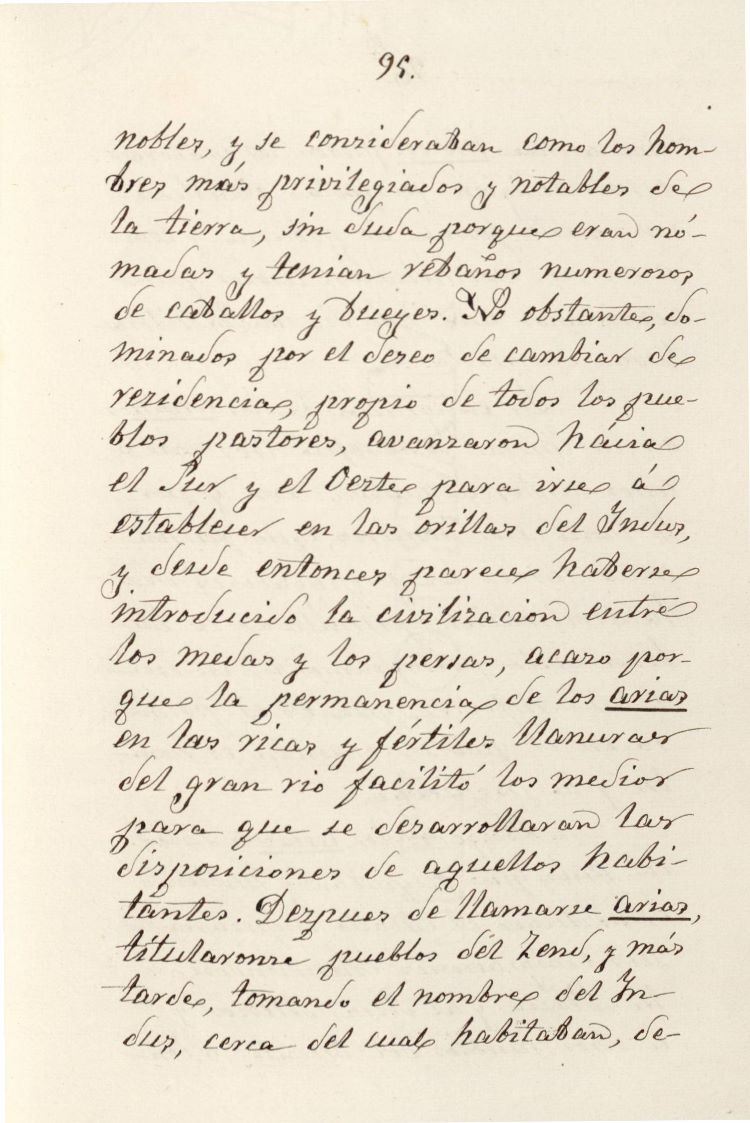 95.
nobles, y se consideraban como los hom-
bres más privilegiados y notables de
la tierra, sin duda porque eran nó-
madas y tenian rebaños numerosos
de caballos y bueyes. No obstante, do-
minados por el deseo de cambiar de
residencia, propio de todos los pue-
blos pastores, avanzaron hácia
el Sur y el Oeste para irse á
establecer en las orillas del Indus,
y desde entonces parece haberse
introducido la civilizacion entre
los medas y los persas, acaso por-
que la permanencia de los arias
en las ricas y fértiles llanuras
del gran rio facilitó los medios
para que se desarrollaran las
disposiciones de aquellos habi-
tantes. Despues de llamarse arias,
titularonse pueblos del Zend, y más
tarde, tomando el nombre del In-
dus, cerca del cual habitaban, de-